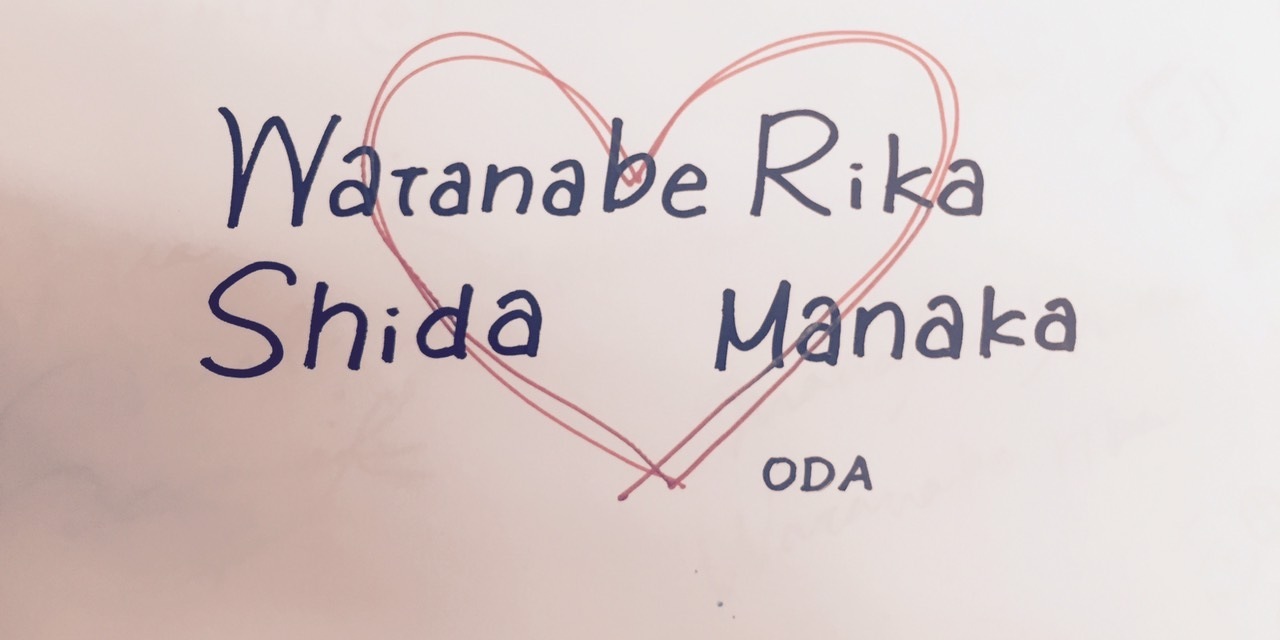 Watanabe Rika
Shida Manaka
ODA